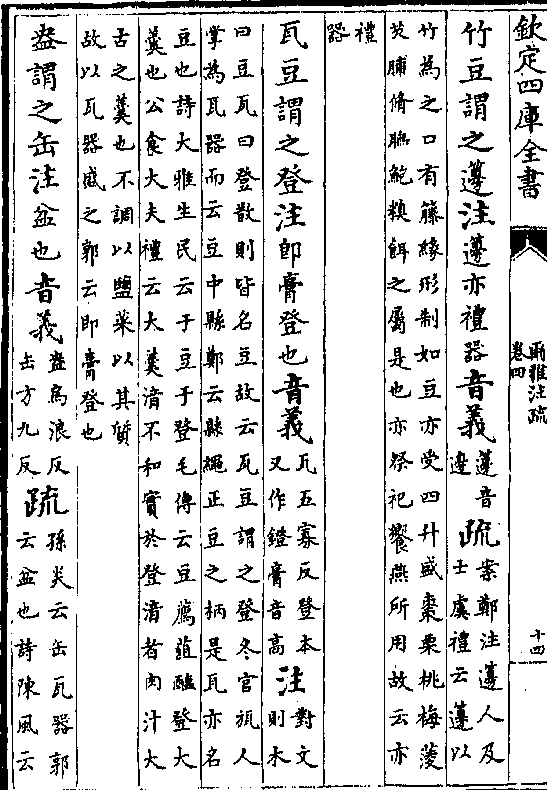 欽定四庫全書
爾雅注疏
卷四
十四
竹豆謂之籩注籩亦禮器音義籩音邊疏案鄭注籩人及士虞禮云籩以
竹為之口有籐緣形制如豆亦受四升盛棗栗桃梅菱
芡脯脩膴鮑糗餌之屬是也亦祭祀饗燕所用故云亦
禮
器
瓦豆謂之登注即膏登也音義瓦五寡反登本又作鐙膏音高注對文則木
曰豆瓦曰登散則皆名豆故云瓦豆謂之登冬官瓬人
掌為瓦器而云豆中縣鄭云縣繩正豆之柄是瓦亦名
豆也詩大雅生民云于豆于登毛傳云豆薦葅醢登大
羮也公食大夫禮云大羮湆不和實於登湆者肉汁大
古之羮也不調以鹽菜以其質
故以瓦器盛之郭云即膏登也
盎謂之缶注盆也音義盎烏浪反缶方九反疏孫炎云缶瓦器郭云盆也詩陳風云